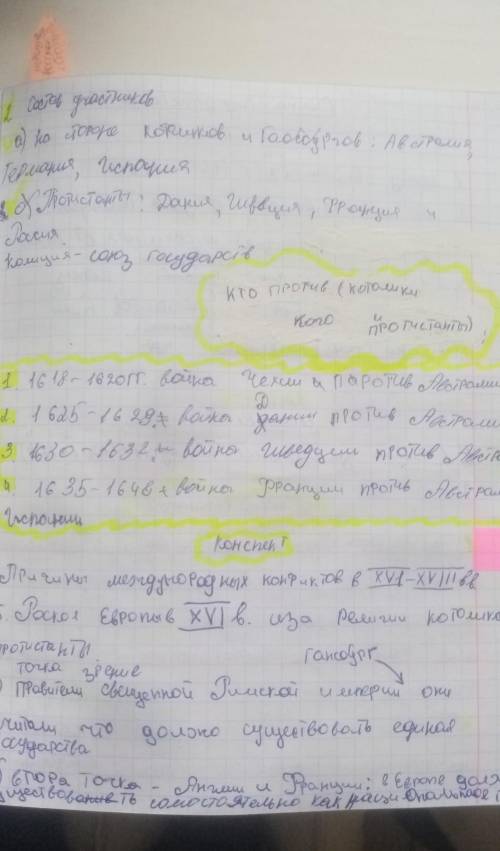 2 Состав участников
а) на стороне католиков и Габсбургов: Австрия,
Германия, Испания
б) Протистанты: Дания, Швеция, Франция и
Россия
Колиция - союз государств
КТО ПРОТИВ (КОТОЛИКИ
КОГО И ПРОТИСТАНТЫ)
1. 1618-1620гг. война Чехии против Австралии
2. 1625-1629г война Дании против Австралии
3. 1630-1632г войны Шведции против Австр
4. 1635-1648г войны Франции против Австрал
Испании
Конспект
Причины международных конфликтов в XVI-XVIII вв
Раскол Европы в XVI в. из за религии котолико
протистанты
точка зрение
гансбург
) правители священной Римской империи они
читали что должно существовать единая
осударства
) втора точка - Англии и Франции: в Европе долж
уществовать самостоятельно как